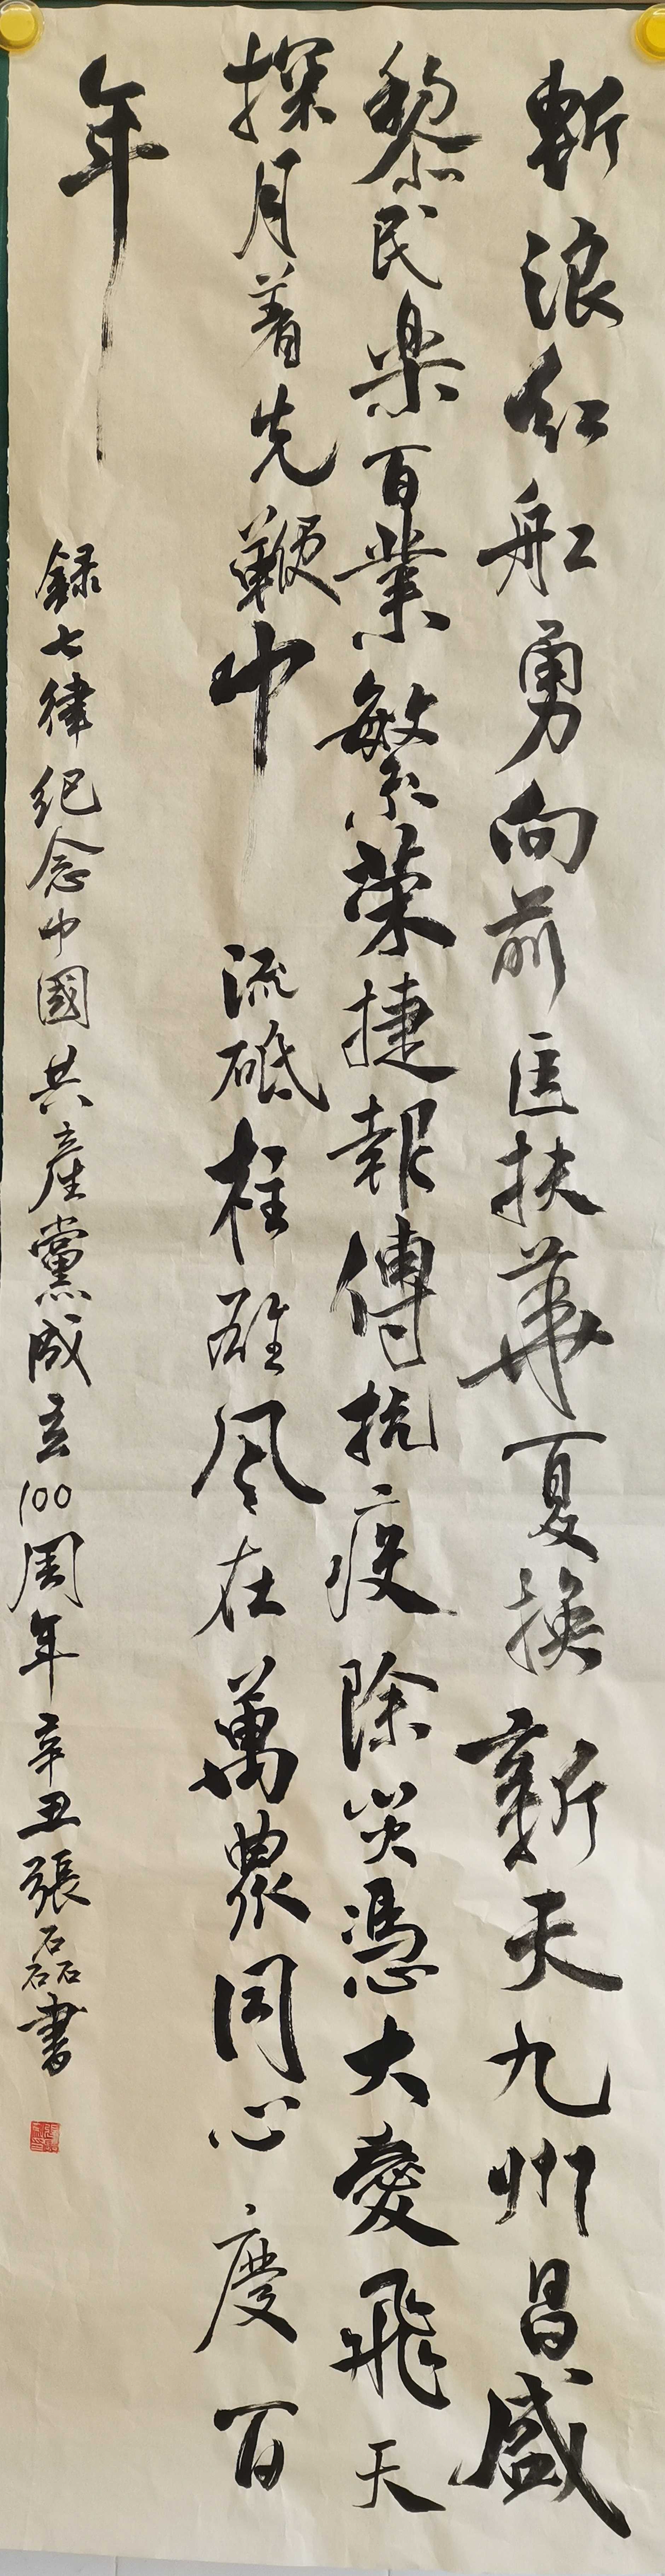 斬浪紅船勇向前匡扶華夏換新天九州昌盛
黎民楽百業繁榮捷報傳抗疫除災憑大愛飛天
探月着先鞭中流砥柱雄风在萬眾同心慶百
年
録七律紀念中國共產黨成立100周年辛丑張磊書